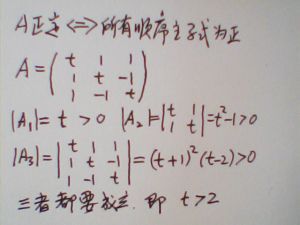 A正定<=>所有顺序主子式为正
A=(t 1 1
1 t -1
1 -1 t)
|A₁|=t>0 |A₂|=|t 1
1 t|=t²-1>0
|A₃|=|t 1 1
1 t -1
1 -1 t|=(t+1)²(t-2)>0
三者都要成立.即 t>2